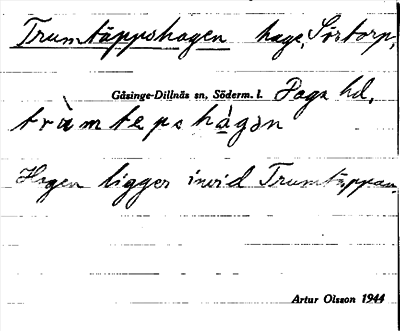 Trumtäppshagen hage, Sörtorp,
Gåsinge-Dillnäs sn, Söderm. l. Daga hd,
tràmtepshàgan
Hagen ligger invid Trumtäppan.
Artur Olsson 1944